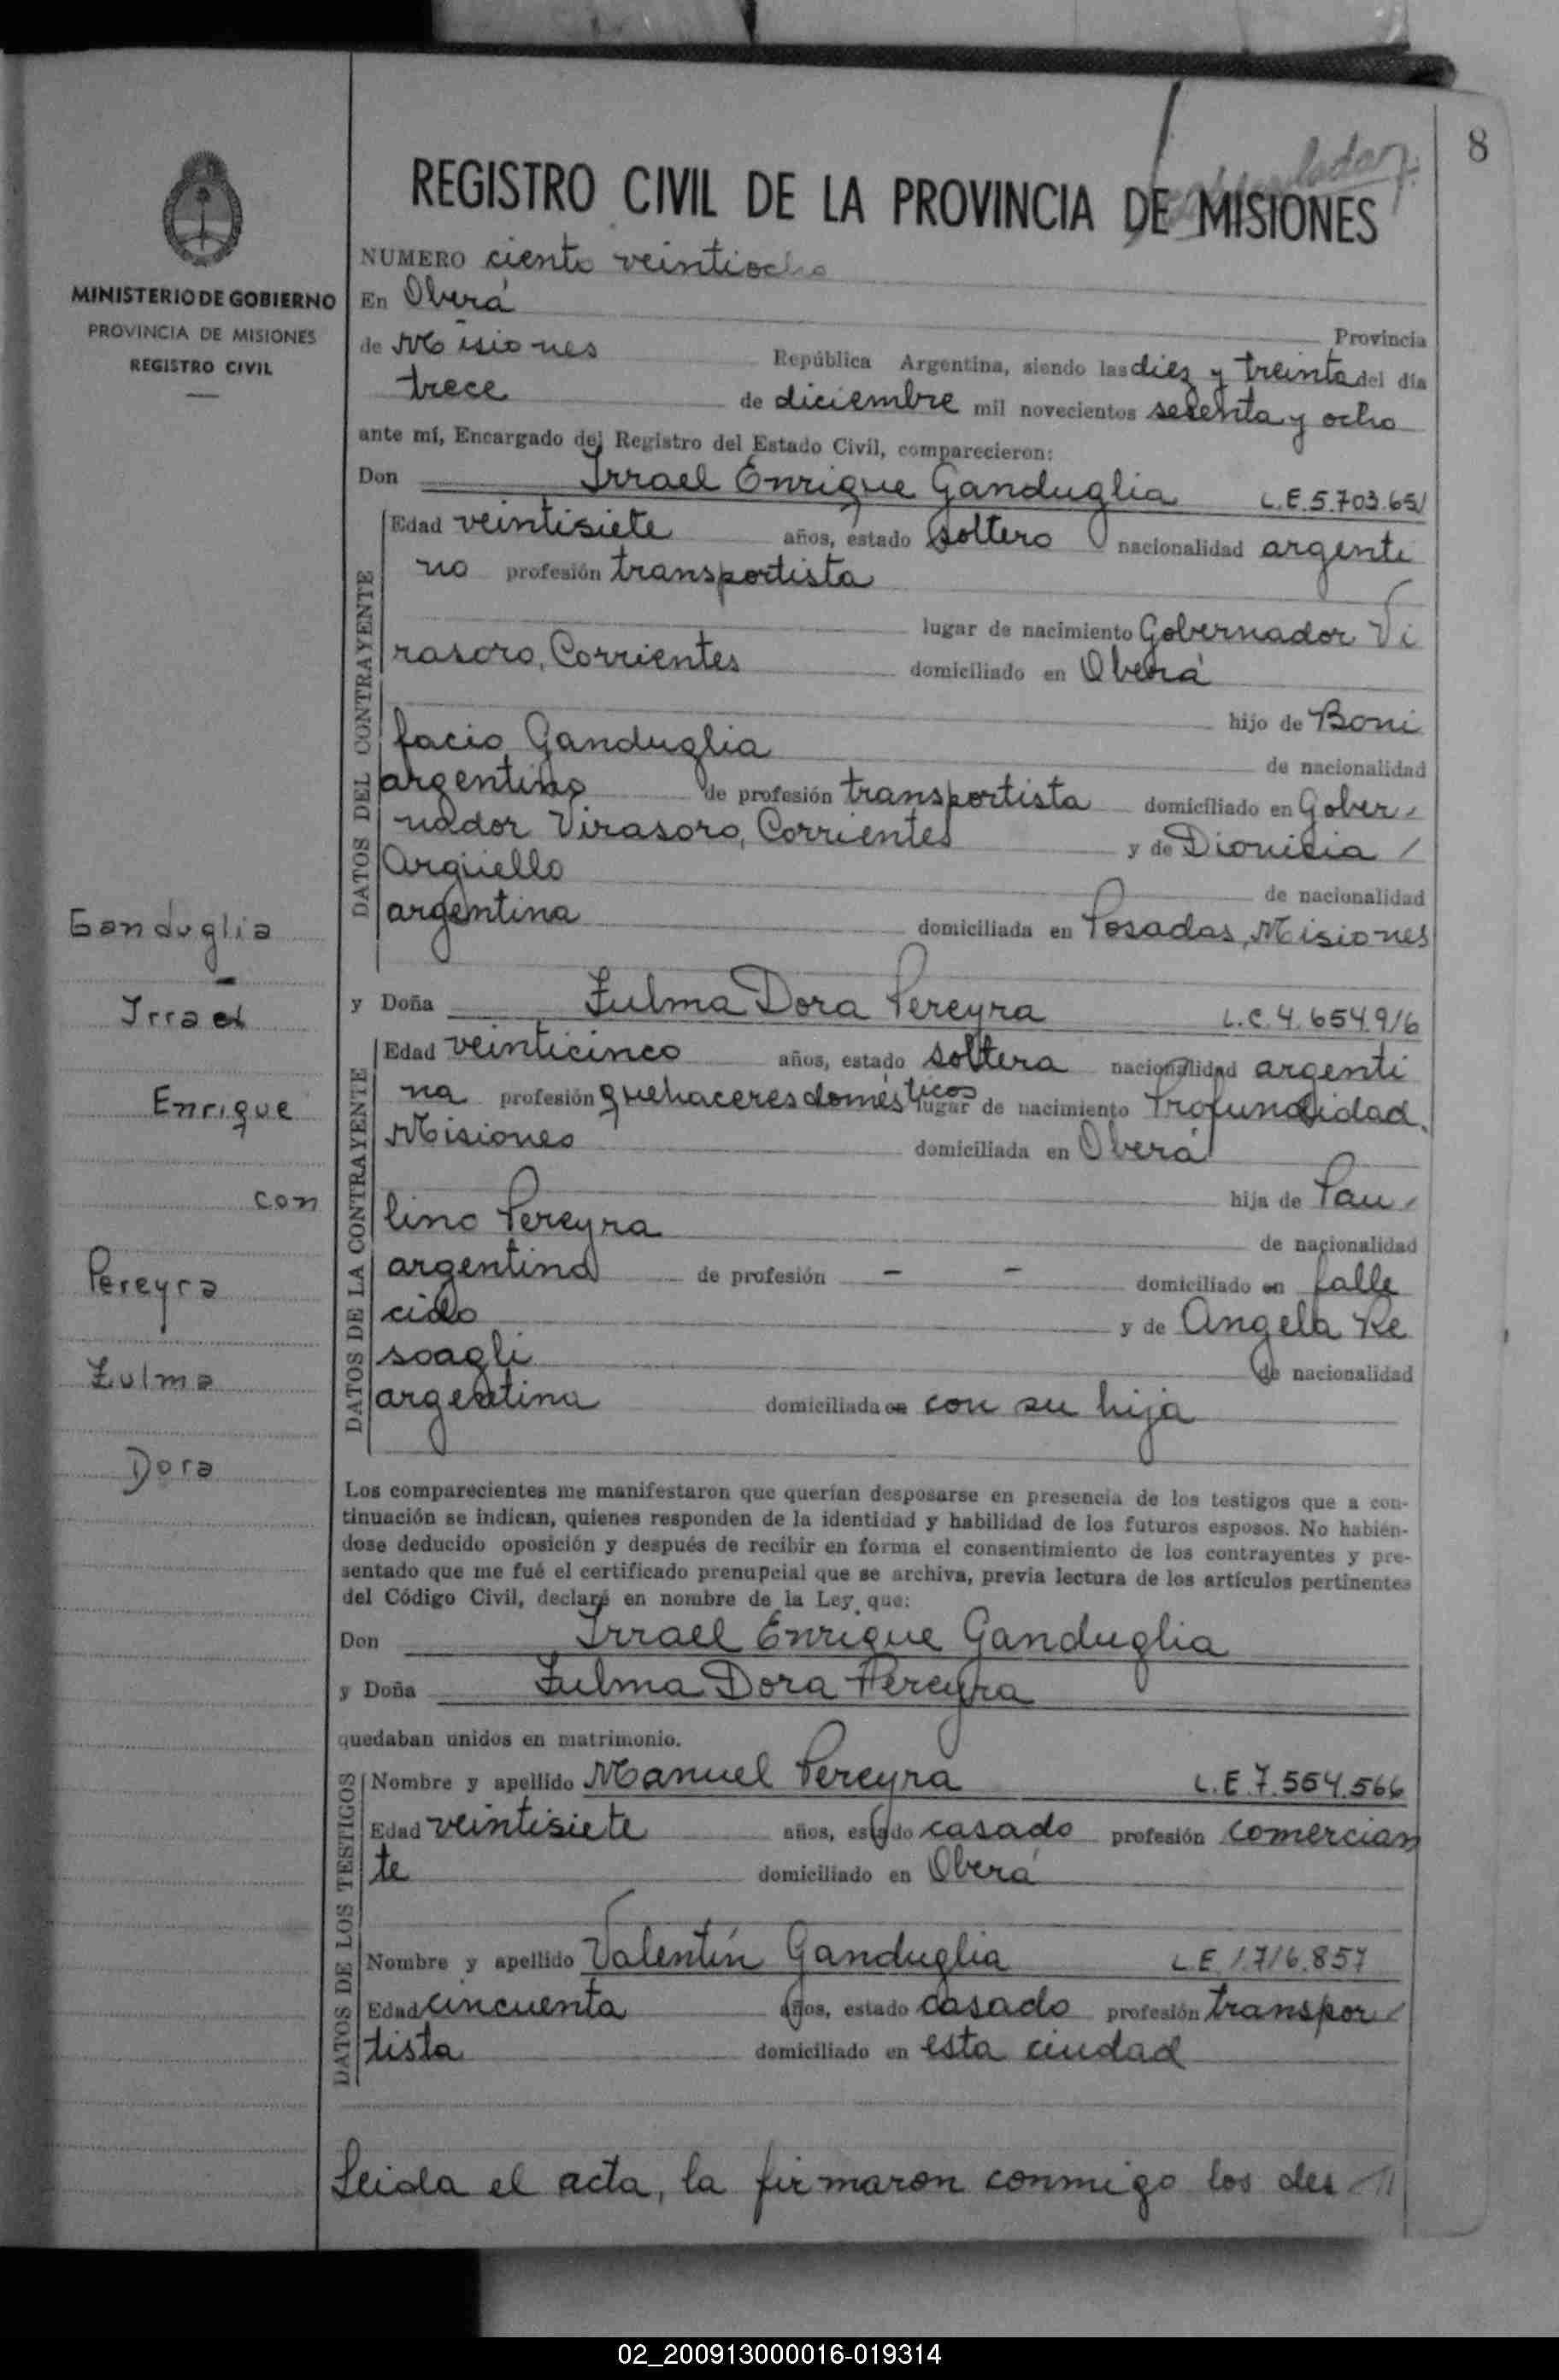 8
REGISTRO CIVIL DE LA PROVINCIA DE MISIONES
MINISTERIO DE GOBIERNO
PROVINCIA DE MISIONES
REGISTRO CIVIL
NUMERO ciento veintiocho
En Oberá
Provincia
de Misiones República Argentina, siendo las diez y treinta del día
trece de diciembre mil novecientos sesenta y ocho
ante mí, Encargado del Registro del Estado Civil, comparecieron:
Don Irrael Enrique Ganduglia L.E. 5.703.651
DATOS DEL CONTRAYENTE
Edad veintisiete años, estado soltero nacionalidad argenti
no profesión transportista
lugar de nacimiento Gobernador Vi
rasoro, Corrientes domiciliado en Oberá
hijo de Boni
facio Ganduglia
de nacionalidad
argentino de profesión transportista domiciliado en Gober
nador Virasoro, Corrientes y de Dionisia
Argüello
de nacionalidad
argentina domiciliada en Posadas, Misiones
y Doña Zulma Dora Pereyra L.C. 4.654.916
DATOS DE LA CONTRAYENTE
Edad veinticinco años, estado soltera nacionalidad argenti
na profesión quehaceres domésticos lugar de nacimiento Profundidad,
Misiones domiciliada en Oberá
hija de Pau
lino Pereyra
de nacionalidad
argentina de profesión - - domiciliado en falle
cido y de Angela Re
soagli
de nacionalidad
argentina domiciliada en con su hija
Ganduglia
-
Irrael
Enrique
con
Pereyra
Zulma
Dora
Los comparecientes me manifestaron que querían desposarse en presencia de los testigos que a con-
tinuación se indican, quienes responden de la identidad y habilidad de los futuros esposos. No habién-
dose deducido oposición y después de recibir en forma el consentimiento de los contrayentes y pre-
sentado que me fué el certificado prenupcial que se archiva, previa lectura de los artículos pertinentes
del Código Civil, declaré en nombre de la Ley que:
Don Irrael Enrique Ganduglia
y Doña Zulma Dora Pereyra
quedaban unidos en matrimonio.
DATOS DE LOS TESTIGOS
Nombre y apellido Manuel Pereyra L.E. 7.554.566
Edad veintisiete años, estado casado profesión comercian
te domiciliado en Oberá
Nombre y apellido Valentín Ganduglia L.E. 1.716.857
Edad cincuenta años, estado casado profesión transpor
tista domiciliado en esta ciudad
Leida el acta, la firmaron conmigo los des
02_200913000016-019314